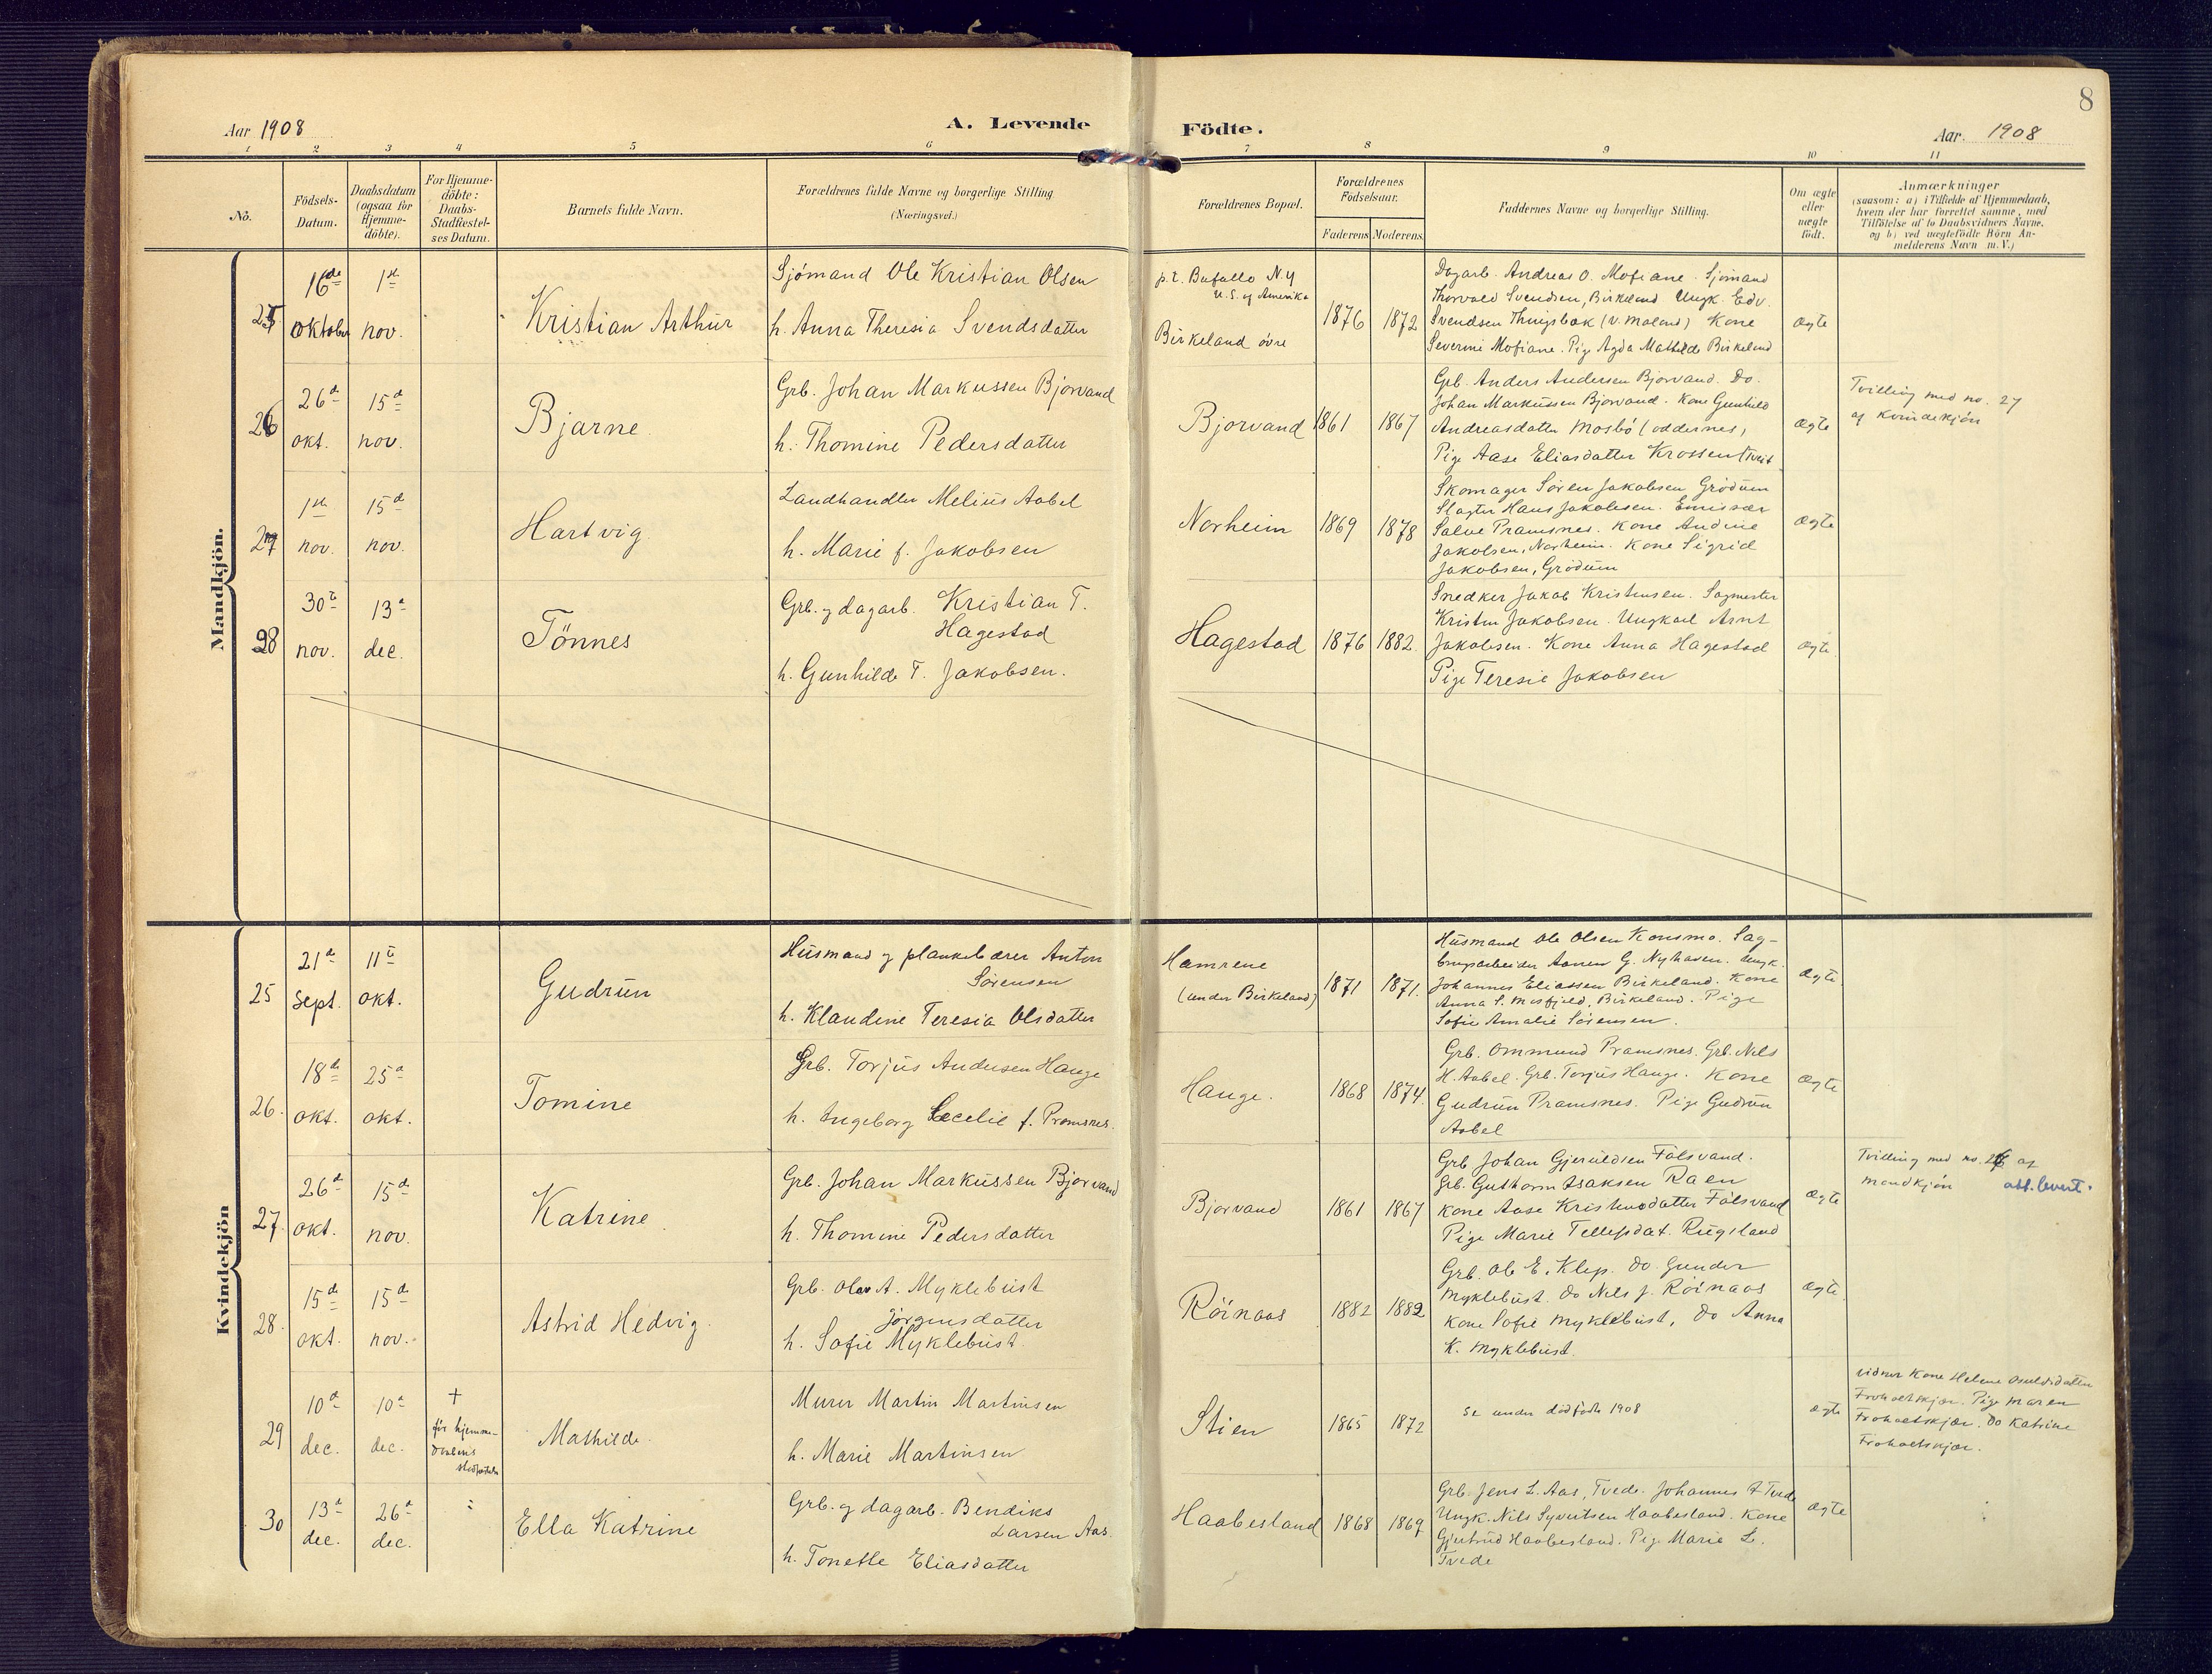 8
Aar 1908
A. Levende
Födte.
Aar. 1908
1 2 3 4 5 6 7 8 9 10 11
No.
Födsels-
Datum.
Daabsdatum
(ogsaa for
Hjemme-
döbte).
For Hjemme-
döbte:
Daabs-
Stadfæstel-
ses Datum.
Barnets fulde Navn.
Forældrenes fulde Navne og borgerlige Stilling
(Næringsvei.)
Forældrenes Bopæl.
Forældrenes
Födselsaar.
Faderens
Moderens
Faddernes Navne og borgerlige Stilling.
Om ægte
eller
uægte
født.
Anmærkninger
(saasom: a) i Tilfælde af Hjemmedaab,
hvem der har forrettet samme, med
Tilföielse af to Daabsvidners Navne,
og b) ved uægtefödte Börn An-
melderens Navn m.V.)
Mandkjön.
25
16de
oktober
1ste
nov.
Kristian Arthur
Sjömand Ole Kristian Olsen
h. Anna Theresia Svendsdatter
p.t. Bufallo N.Y
U.S. og Amerika
Birkeland övre
1876
1872
Dagarb. Andreas O. Mofiane. Sjömand
Thorvald Svendsen, Birkeland Ungk. Edv.
Svendsen Thingsbak (v. Moland) Kone
Severine Mofiane. Pige Agda Mathilde Birkeland
ægte
26
26d
okt.
15d
nov.
Bjarne
Grb. Johan Markussen Bjorvand
h. Thomine Pedersdatter
Bjorvand
1861
1867
Grb. Anders Andersen Bjorvand. Do.
Johan Markussen Bjorvand. Kone Gunhild
Andreasdatter Mosbö (oddernes,
Pige Aase Eliasdatter Krossen (Tveit
ægte
Tvilling med no. 27
af kvindekjön
27
1ste
nov.
15d
nov.
Hartvig
Landhandler Melius Aabel
h. Marie f. Jakobsen
Norheim
1869
1878
Skomager Sören Jakobsen Grödum
Slagter Hans Jakobsen. Emissær
Salve Pramsnes. Kone Andrine
Jakobsen, Norheim. Kone Sigrid
Jakobsen, Grödum
ægte
28
30te
nov.
13d
dec.
Tönnes
Grb. og dagarb. Kristian T.
Hagestad
h. Gunhilde T. Jakobsen.
Hagestad
1876
1882
Snedker Jakob Kristensen. Sagmester
Kristen Jakobsen. Ungkarl Arnt
Jakobsen. Kone Anna Hagestad
Pige Teresie Jakobsen
ægte
Kvindekjön
25
21d
Sept.
11te
okt.
Gudrun
Husmand og plankebærer Anton
Sörensen
h. Klaudine Teresia Olsdatter
Hamrene
(under Birkeland)
1871
1871.
Husmand Ole Olsen Konsmo. Sag-
brugsarbeider Aanen G. Nyhaven. Ungk.
Johannes Eliassen Birkeland. Kone
Anna S. Mosfjeld, Birkeland. Pige
Sofie Amalie Sörensen.
ægte
26.
18de
okt.
25d
okt.
Tomine
Grb. Torjus Andersen Hauge
h. Ingeborg Cecelie f. Pramsnes.
Hauge.
1868
1874.
Grb. Ommund Pramsnes. Grb. Nils
H. Aabel. Grb. Torjus Hauge. Kone
Gudrun Pramsnes. Pige Gudrun
Aabel
ægte
27.
26d
okt.
15d
nov.
Katrine
Grb. Johan Markussen Bjorvand
h. Thomine Pedersdatter
Bjorvand
1861
1867
Grb Johan Gjeruldsen Fölsvand.
Grb. Guthorm Isaksen Raen
Kone Aase Kristensdatter Fölsvand
Pige Marie Tellefsdat. Rugsland
ægte
Tvilling med no. 26 af
mandkjön
att. levert.
28.
15de
okt.
15d
nov.
Astrid Hedvig.
Grb. Olav A. Myklebust
Jörgensdatter
h. Sofie Myklebust.
Röinaas
1882
1882
Grb. Ole E. Klep. do. Gunder
Myklebust. Do Nils J. Röinaas
Kone Sofie Myklebust, Do Anna
K. Myklebust.
ægte.
29
10d
dec.
10d
dec.
+
för hjemme-
daabens
Mathilde.
Murer Martin Martinsen
h. Marie Martinsen
Stien
1865
1872
se under dödfödte 1908
ægte
vidner Kone Helene
Pige Maren
Do Katrine
30
13d
dec.
26d
dec.
Ella Katrine
Grb. og dagarb. Bendiks
Larsen Aas.
h. Tonette Eliasdatter
Haabesland
1868
1869
Grb. Jens L. Aas, Tvede. Johannes F Tvede
Ungk. Nils Syvertsen Haabesland. Kone
Gjertrud Haabesland. Pige Marie L.
Tvede
ægte